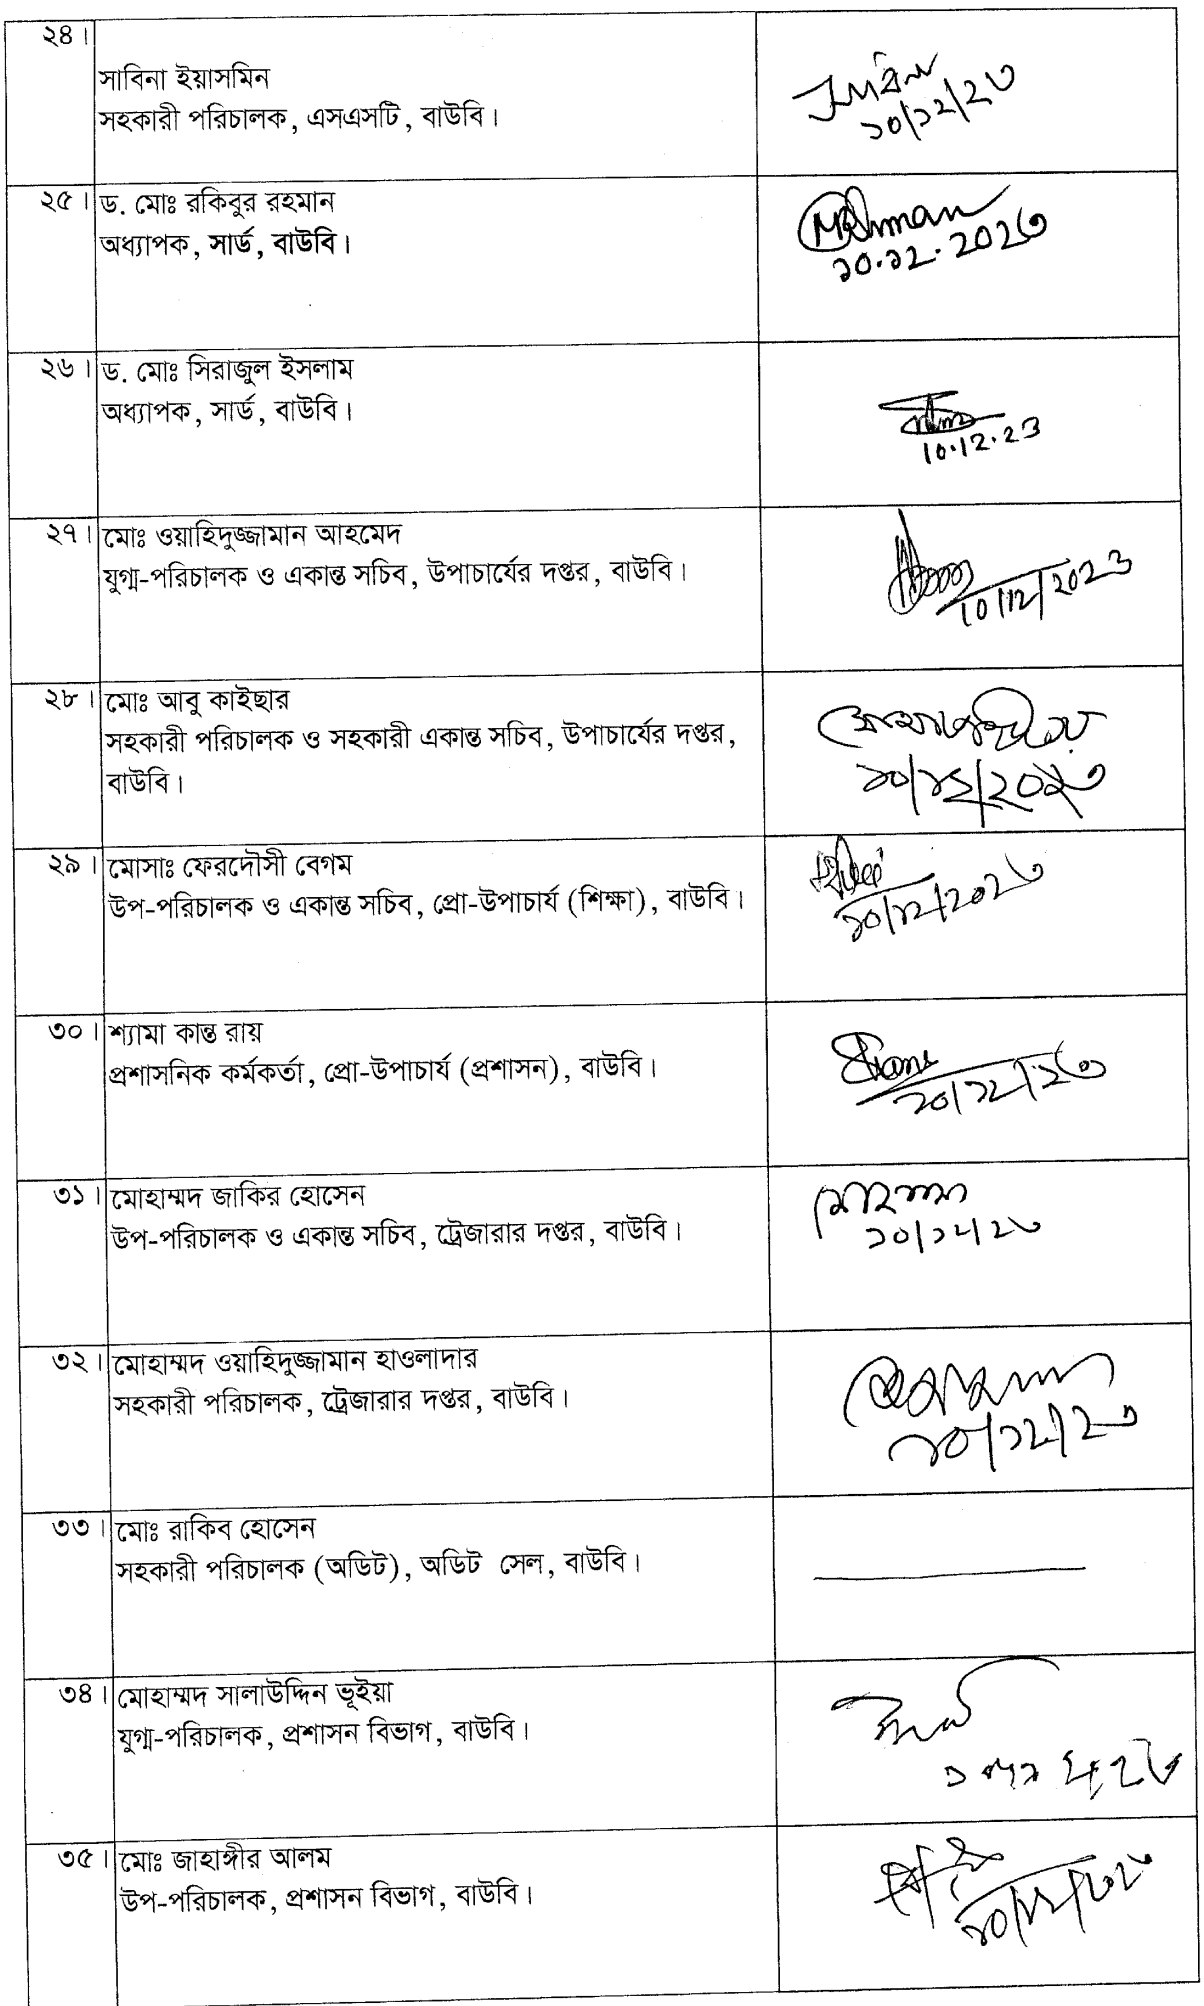 ২৪।
সাবিনা ইয়াসমিন
সহকারী পরিচালক, এসএসটি, বাউবি।
১০/১২/২৩
২৫। ড. মোঃ রকিবুর রহমান
অধ্যাপক, সার্ড, বাউবি।
১০.১২.২০২৩
২৬। ড. মোঃ সিরাজুল ইসলাম
অধ্যাপক, সার্ড, বাউবি।
10.12.23
২৭। মোঃ ওয়াহিদুজ্জামান আহমেদ
যুগ্ম-পরিচালক ও একান্ত সচিব, উপাচার্যের দপ্তর, বাউবি।
10/12/2023
২৮। মোঃ আবু কাইছার
সহকারী পরিচালক ও সহকারী একান্ত সচিব, উপাচার্যের দপ্তর,
বাউবি।
১০/১২/২০২৩
২৯। মোসাঃ ফেরদৌসী বেগম
উপ-পরিচালক ও একান্ত সচিব, প্রো-উপাচার্য (শিক্ষা), বাউবি।
১০/১২/২০২৩
৩০। শ্যামা কান্ত রায়
প্রশাসনিক কর্মকর্তা, প্রো-উপাচার্য (প্রশাসন), বাউবি।
১০/১২/২৩
৩১। মোহাম্মদ জাকির হোসেন
উপ-পরিচালক ও একান্ত সচিব, ট্রেজারার দপ্তর, বাউবি।
১০/১২/২৩
৩২। মোহাম্মদ ওয়াহিদুজ্জামান হাওলাদার
সহকারী পরিচালক, ট্রেজারার দপ্তর, বাউবি।
১০/১২/২৩
৩৩। মোঃ রাকিব হোসেন
সহকারী পরিচালক (অডিট), অডিট সেল, বাউবি।
৩৪। মোহাম্মদ সালাউদ্দিন ভূইয়া
যুগ্ম-পরিচালক, প্রশাসন বিভাগ, বাউবি।
৩৫। মোঃ জাহাঙ্গীর আলম
উপ-পরিচালক, প্রশাসন বিভাগ, বাউবি।